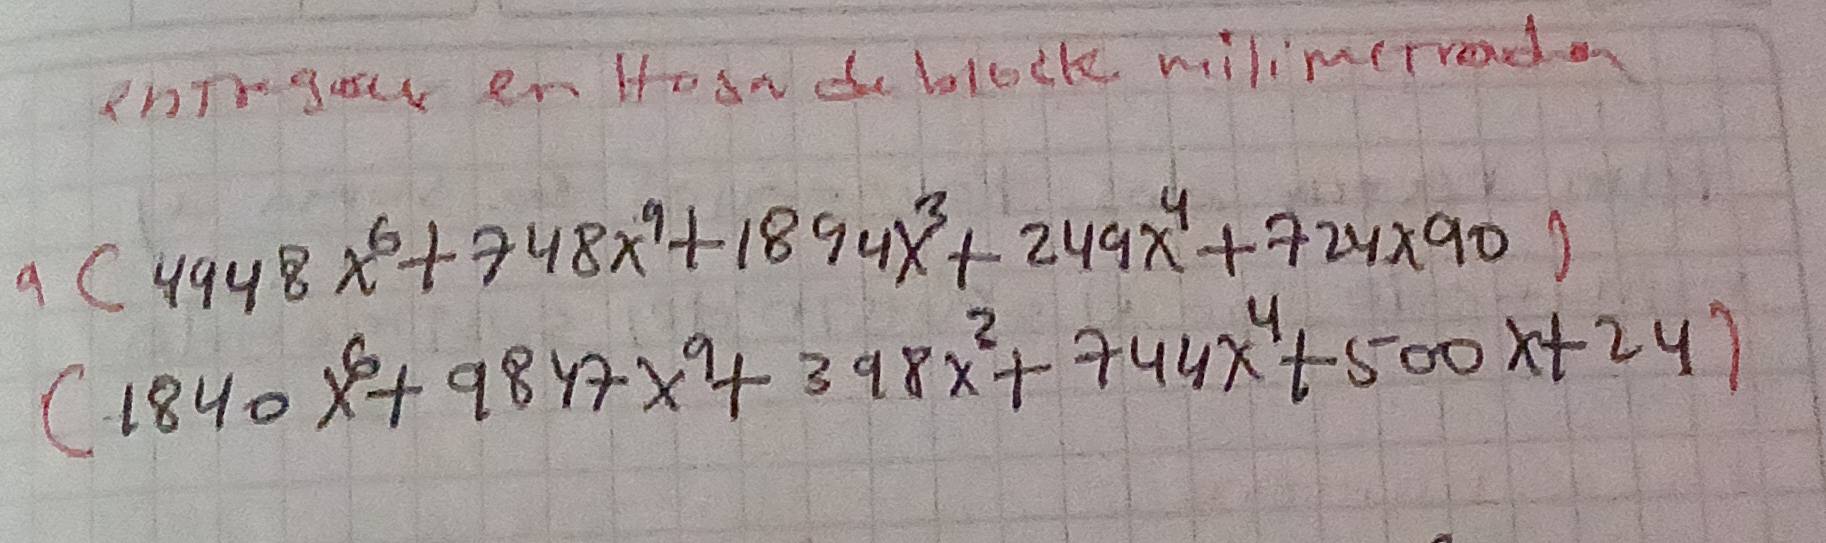 entregar en Hosa de block milimetrado
a ( 4948x⁶+748x⁹+1894x³+249x⁴+724x90 )
(1840x⁶+9847x⁹+398x²+744x⁴+500x+24)